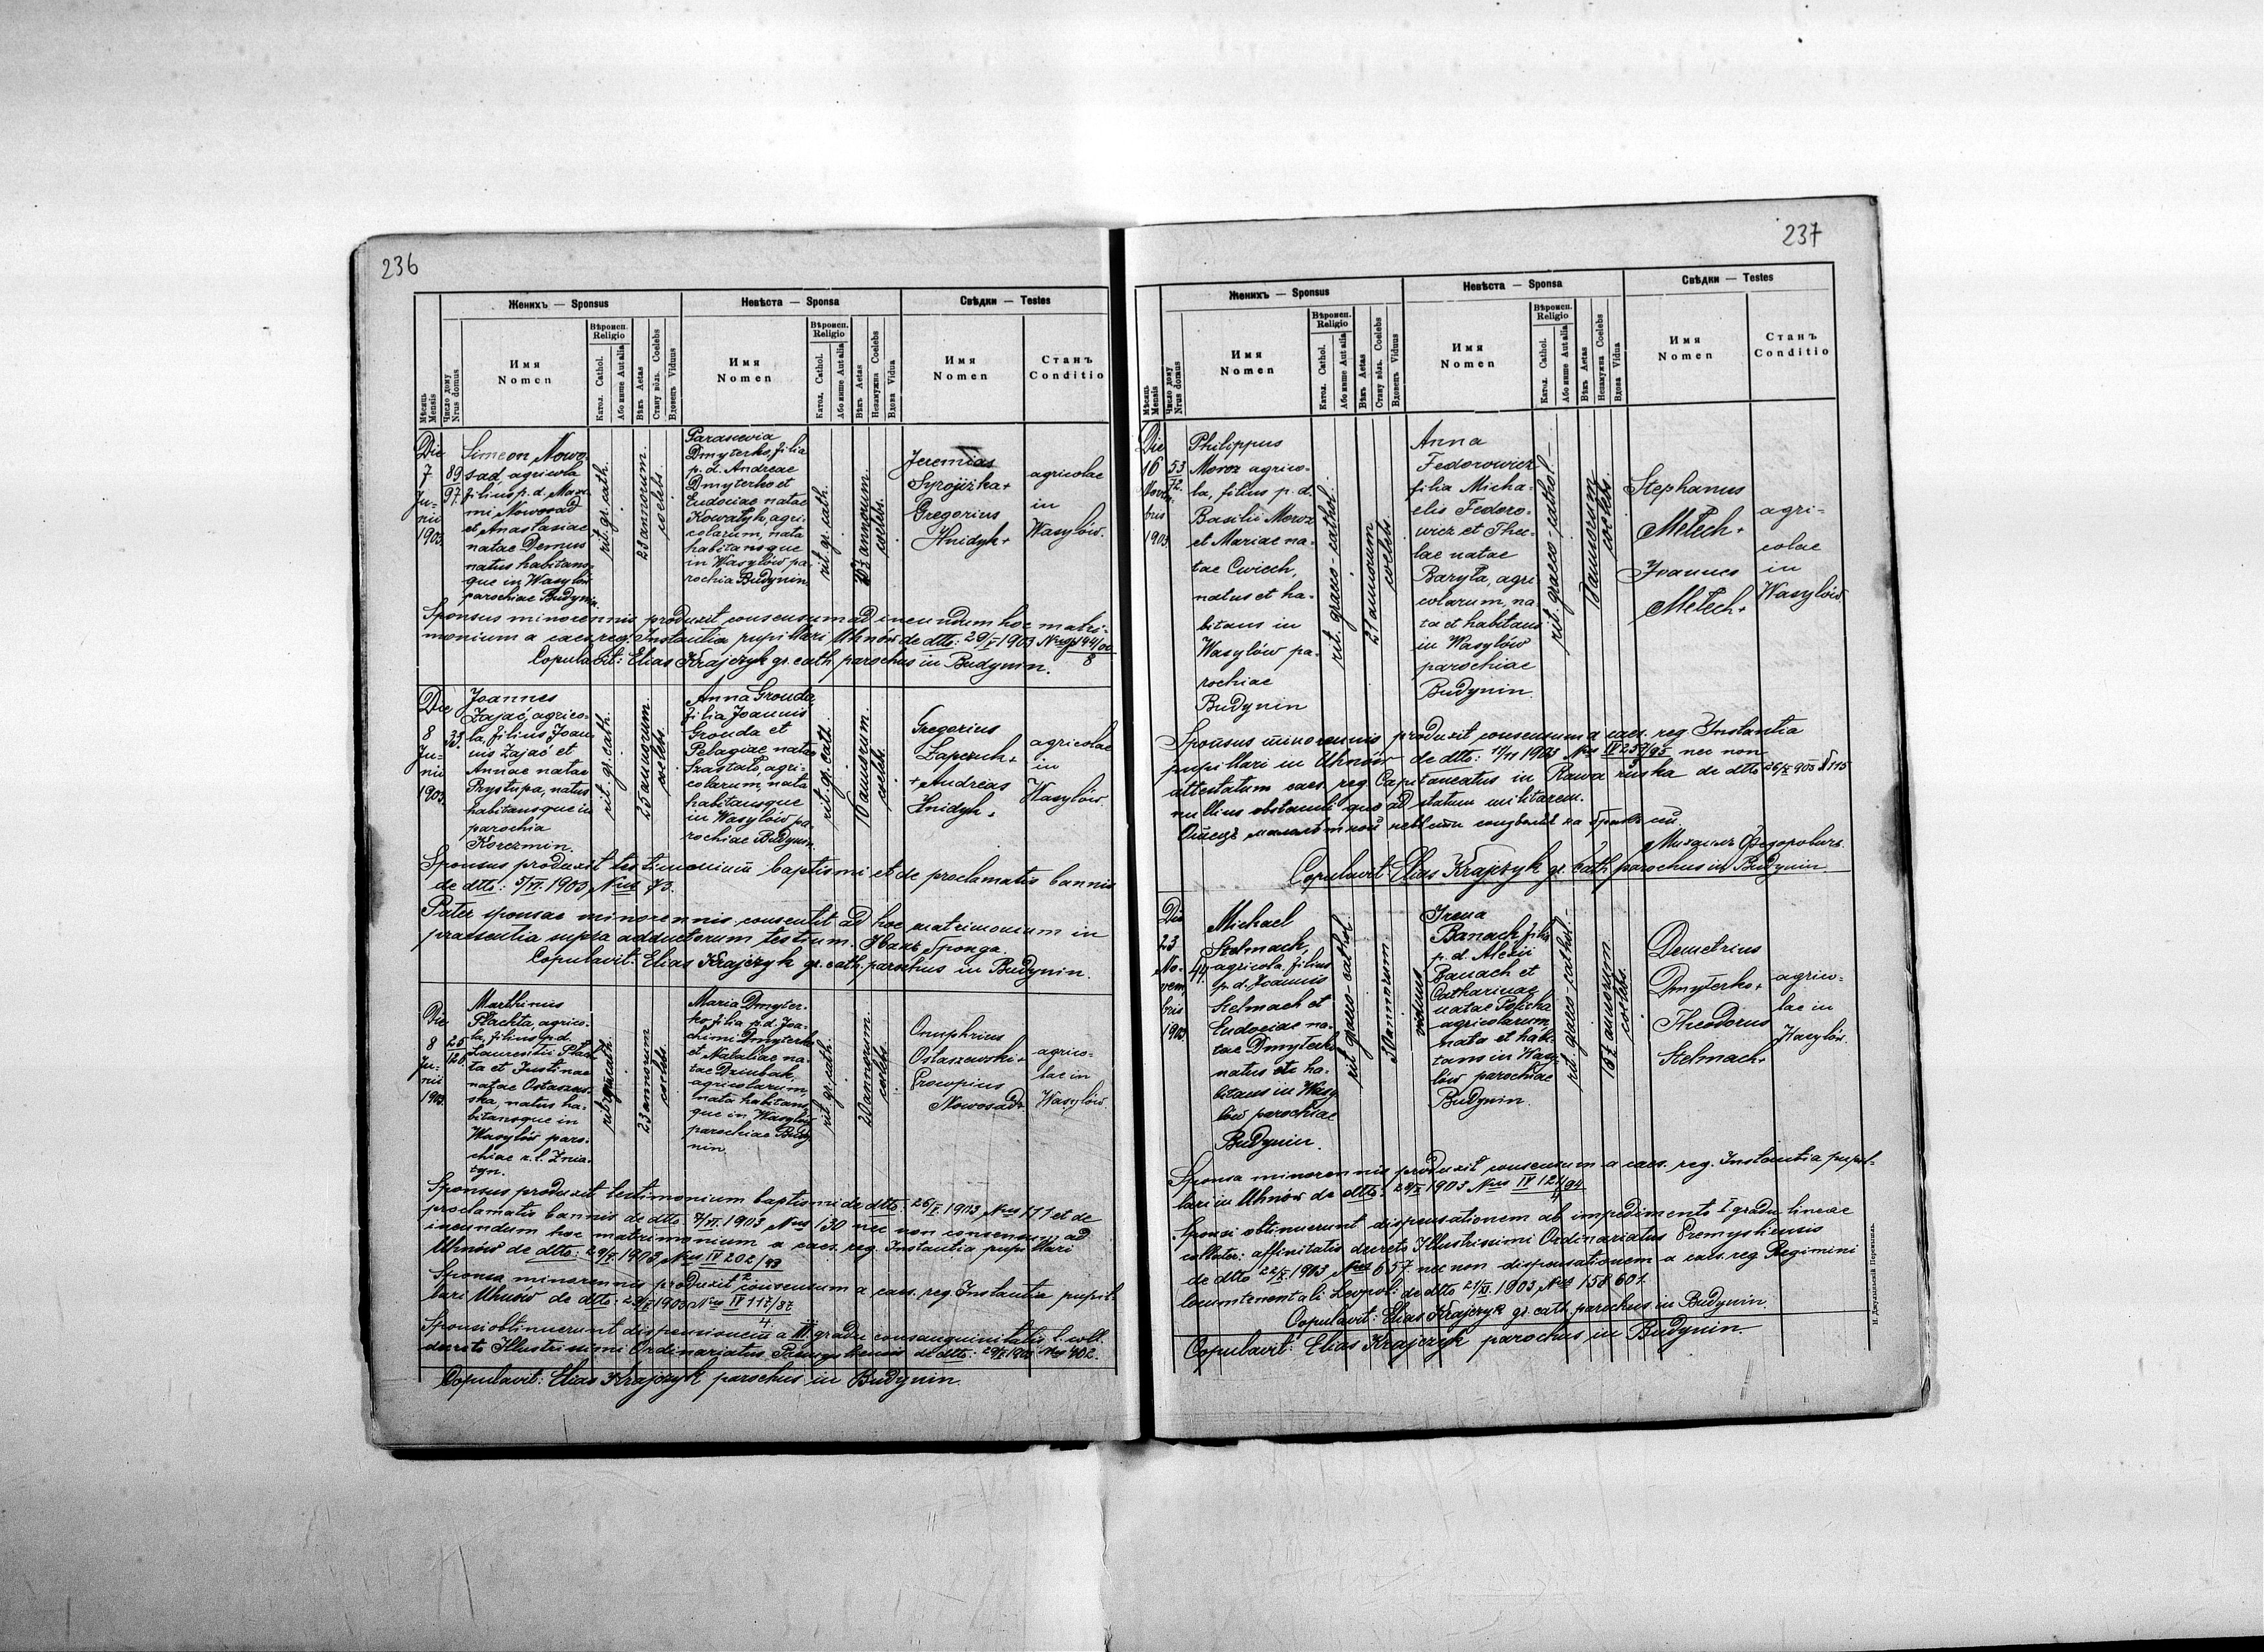 236
Женихъ — Sponsus
Невѣста — Sponsa
Свѣдки — Testes
Мѣсяць Mensis
Число дому Nrus domus
Имя
Nomen
Вѣроисп.
Religio
Катол. Cathol.
Або инше Aut alia
Вѣкъ Aetas
Стану вôль. Coelebs
Вдовець Viduus
Имя
Nomen
Вѣроисп.
Religio
Катол. Cathol.
Або инше Aut alia
Вѣкъ Aetas
Незамужна Coelebs
Вдова Vidua
Имя
Nomen
Станъ
Conditio
Die
7
Ju-
nii
1903.
89
97
Simeon Nowo-
sad, agricola
filius p. d. Maxi-
mi Nowosad
et Anastasiae
natae Demus
natus habitans-
que in Wasylów
parochiae Budynin.
rit. gr. cath.
23 annorum.
coelebs.
Parascevia
Dmyterko, filia
p. d. Andreae
Dmyterko et
Eudociae natae
Kowalyk, agri-
colarum, nata
habitansque
in Wasylów pa-
rochia Budynin
rit. gr. cath.
annorum.
coelebs.
Jeremias
Syrojizka+
Gregorius
Hnidyk+
agricolae
in
Wasylów.
Sponsus minorennis produxit consensum ad ineundum hoc matri-
monium a caes. reg. Instantia pupillari Uhnów de dtto: 29/V 1903
Copulavit: Elias Krajczyk gr. cath. parochus in Budynin.
Die
8
Ju-
nii
1903.
33.
Joannes
Zając, agrico-
la, filius Joan-
nis Zając et
Annae natae
Przystupa, natus
habitansque in
parochia
Korczmin.
rit. gr. cath.
25 annorum.
coelebs.
Anna Grouda,
filia Joannis
Grouda et
Pelagiae natae
Szastało, agri-
colarum, nata
habitansque
in Wasylów pa-
rochiae Budynin.
rit. gr. cath.
annorum.
coelebs.
Gregorius
Łapczuk+
+Andreas
Hnidyk.
agricolae
in
Wasylów.
Sponsus produxit testimonium baptismi et de proclamatis bannis
de dtto: 5/VI. 1903 Nus 73.
Pater sponsae minorennis consentit ad hoc matrimonium in
praesentia supra adductorum testium.
Copulavit: Elias Krajczyk gr. cath. parochus in Budynin.
Die
8
Ju-
nii
1903.
25
128.
Marthinus
Płachta, agrico-
la, filius p.d.
Laurentii Płach-
ta et Justinae
natae Ostaszew-
ska, natus ha-
bitansque in
Wasylów paro-
chiae r. l. Żnia-
tyn.
23 annorum
coelebs.
Maria Dmyter-
ko filia p.d. Joa-
chimi Dmyterko
et Nataliae na-
tae Dziubak,
agricolarum,
nata habitans-
que in Wasylów
parochiae Budy-
nin.
rit. gr. cath.
20 annorum.
coelebs.
Onuphrius
Ostaszewski+
Procopius
Nowosad+
agrico-
lae in
Wasylów.
Sponsus produxit testimonium baptismi de dtto: 26/V. 1903 Nus 177 et de
proclamatis bannis de dtto: 7/VI. 1903 Nus 130 nec non consensum ad
ineundum hoc matrimonium a caes. reg. Instantia pupillari
Uhnów de dtto: 29/V 1903 Nus IV 202/93
2
Sponsa minorennis produxit consensum a caes. reg. Instantia pupil-
lari Uhnów de dtto: 29/V 1903 Nus IV 117/87
4
Sponsi obtinuerunt dispensionem a III. gradu consanguinitatis l. coll.
decreto Illustrissimi Ordinariatus Premysliensis de dtto: 29/V 1903 Nus 402.
Copulavit: Elias Krajczyk parochus in Budynin.
237
Женихъ — Sponsus
Невѣста — Sponsa
Свѣдки — Testes
Мѣсяць Mensis
Число дому Nrus domus
Имя
Nomen
Вѣроисп.
Religio
Катол. Cathol.
Або инше Aut alia
Вѣкъ Aetas
Стану вôль. Coelebs
Вдовець Viduus
Имя
Nomen
Вѣроисп.
Religio
Катол. Cathol.
Або инше Aut alia
Вѣкъ Aetas
Незамужна Coelebs
Вдова Vidua
Имя
Nomen
Станъ
Conditio
Die
16
Novem-
bris
1903.
53
12.
Philippus
Moroz agrico-
la, filius p. d.
Basilii Moroz
et Mariae na-
tae Cwiech,
natus et ha-
bitans in
Wasylów pa-
rochiae
Budynin
rit. graeco-cathol.
21 annorum
coelebs.
Anna
Fedorowicz
filia Micha-
elis Fedoro-
wicz et Thec-
lae natae
Baryła, agri-
colarum, na-
ta et habitans
in Wasylów
parochiae
Budynin.
rit. graeco-cathol.
annorum
coelebs.
Stephanus
Melech+
Joannes
Melech+
agri-
colae
in
Wasylów.
Sponsus minorennis produxit consensum a caes. reg. Instantia
pupillari in Uhnów de dtto: 11/11 1903 Nus IV 257/95 nec non
attestatum caes. reg. Capitaneatus in Rawa ruska de dtto
nullius obstanti quo ad statum militarem.
Отець малолѣтной невѣсты
Михаилъ Федоровичъ
Copulavit Elias Krajczyk gr. cath. parochus in Budynin.
Die
23
No-
vem-
bris
1903.
44
Michael
Stelmach,
agricola, filius
p. d. Joannis
Stelmach et
Eudociae na-
tae Dmyterko
natus etc ha-
bitans in Wasy-
lów parochiae
Budynin.
rit. graeco-cathol.
30 annorum
viduus
Irena
Banach filia
p. d. Alexii
Banach et
Catharinae
natae Policha
agricolarum,
nata et habi-
tans in Wasy-
lów parochiae
Budynin.
rit. graeco-cathol.
annorum
coelebs.
Demetrius
Dmyterko+
Theodorus
Stelmach+
agrico-
lae in
Wasylów.
Sponsa minorennis produxit consensum a caes. reg. Instantia pupil-
lari in Uhnów de dtto: 28/X 1903 Nus IV 121/94
Sponsi obtinuerunt dispensationem ab impedimento I gradu lineae
collater: affinitatis decreto Illustrissimi Ordinariatus Premysliensis
de dtto 22/X. 1903 Nus 657. nec non dispensationem a caes. reg. Regimini
locumtenentali Leopol: de dtto 21/XI. 1903 Nus 158601.
Copulavit: Elias Krajczyk gr. cath. parochus in Budynin.
Copulavit: Elias Krajczyk parochus in Budynin.
И. Джулынскій Перемышль.